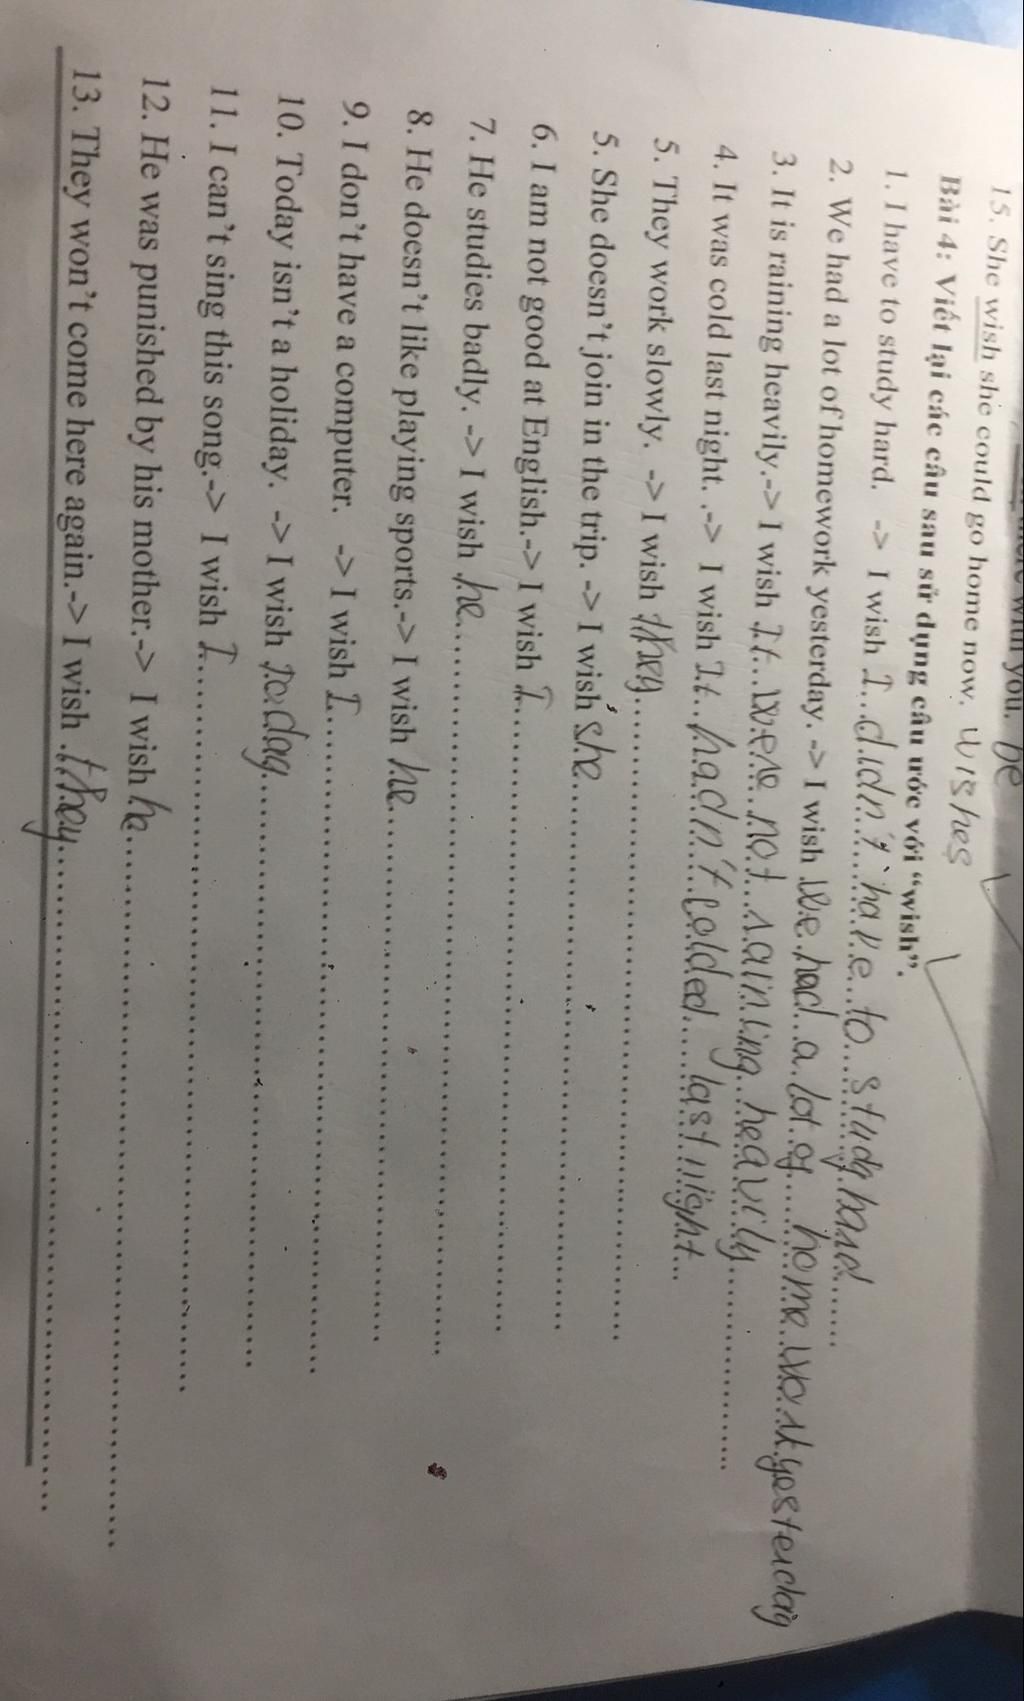 be
15. She wish she could go home now. wishes
Bài 4: Viết lại các câu sau sử dụng câu ước với “wish”.
1. I have to study hard. -> I wish I didn't have to study hard
2. We had a lot of homework yesterday. -> I wish we had a lot of home work yesterday
3. It is raining heavily.-> I wish It were not raining heavily
4. It was cold last night. .-> I wish It hadn't colded last night
5. They work slowly. -> I wish they
5. She doesn't join in the trip. -> I wish she
6. I am not good at English.-> I wish I
7. He studies badly. -> I wish he
8. He doesn't like playing sports.-> I wish he
9. I don't have a computer. -> I wish I
10. Today isn't a holiday. -> I wish today
11. I can't sing this song.-> I wish I
12. He was punished by his mother.-> I wish he
13. They won't come here again.-> I wish they